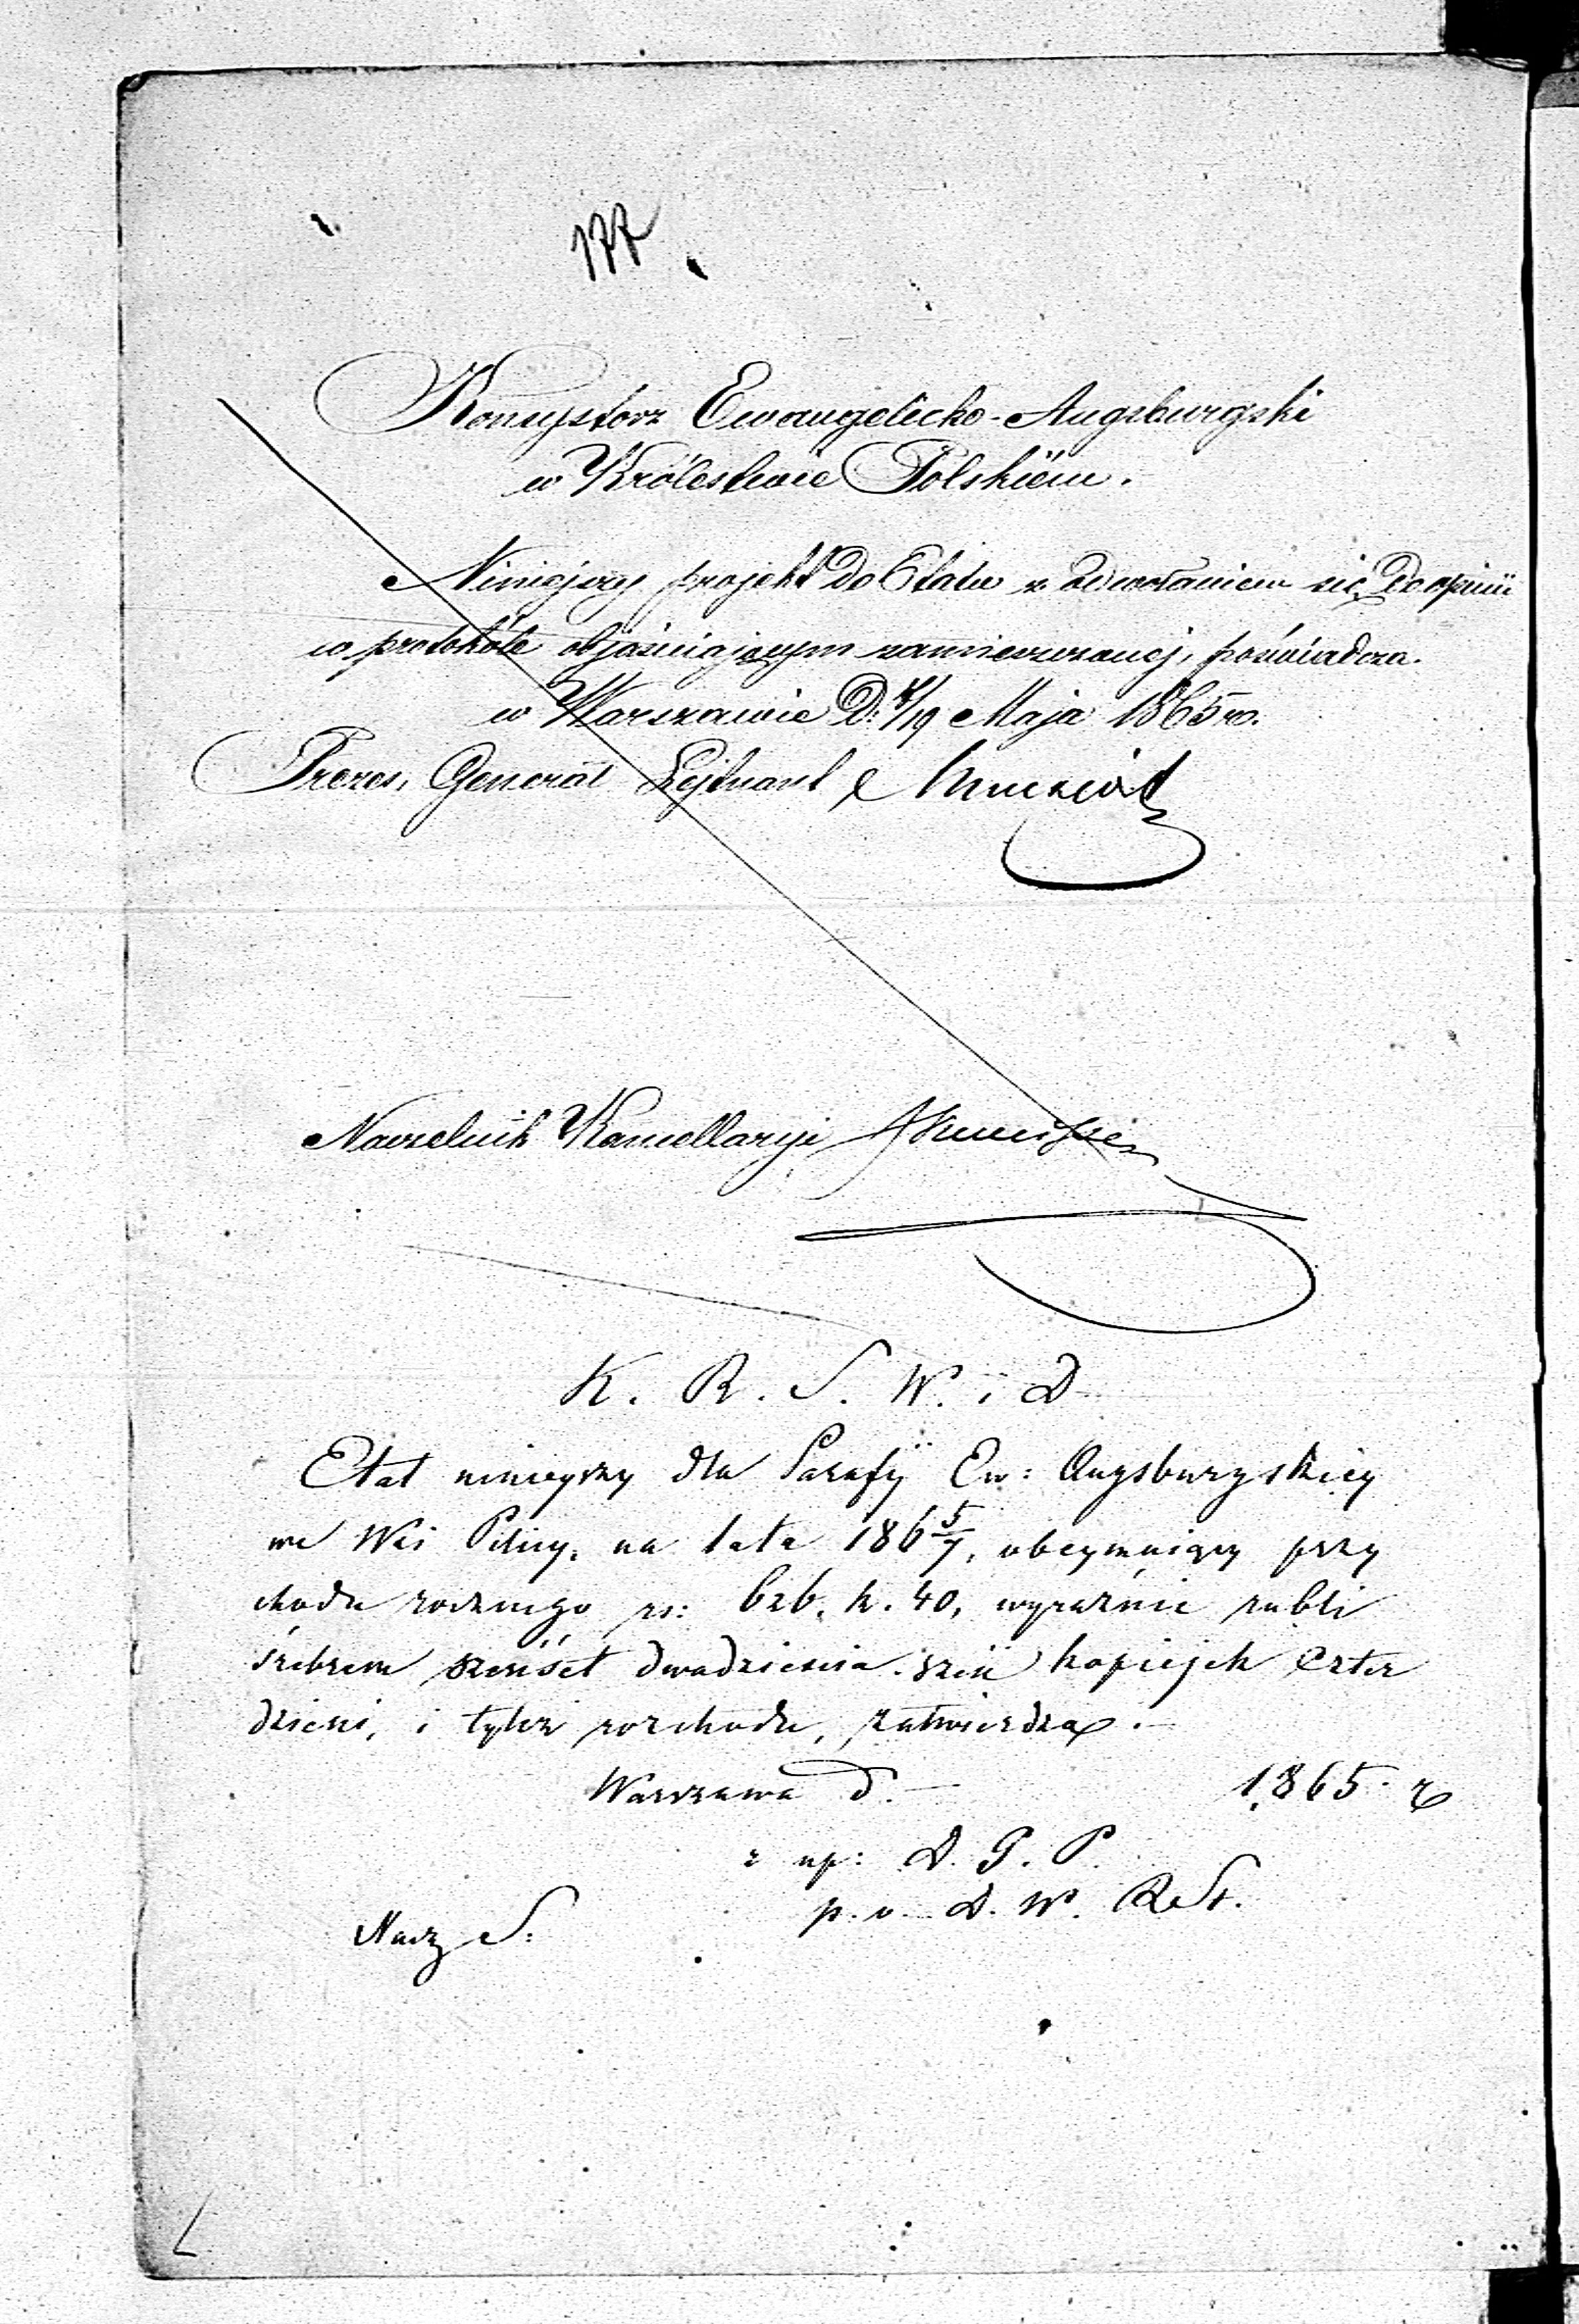 177
Konsystorz Ewangelicko-Augsburgski
w Królestwie Polskiém.
Niniejszy projekt do Etatu z odwołaniem się do opinii
w protokóle objaśniającym zamieszczonej, poświadcza.
w Warszawie D: 7/19 Maja 1865 r.
Prezes, Generał Lejtnant
Naczelnik Kancellaryi
K. R. S. W. i D
Etat ninieyszy dla Parafij Ew: Augsburgskiey
we Wsi Pilicy, na lata 186 5/7, obeymuiący przy
chodu rocznego rs: 626. k. 40, wyraźnie rubli
śrebrem sześćset dwadzieścia sześć kopiejek czter
dzieści, i tyleż rozchodu, zatwierdza.
Warszawa d. 1865 r
z up: D. G. P.
p. o. D. W.
Nacz S: